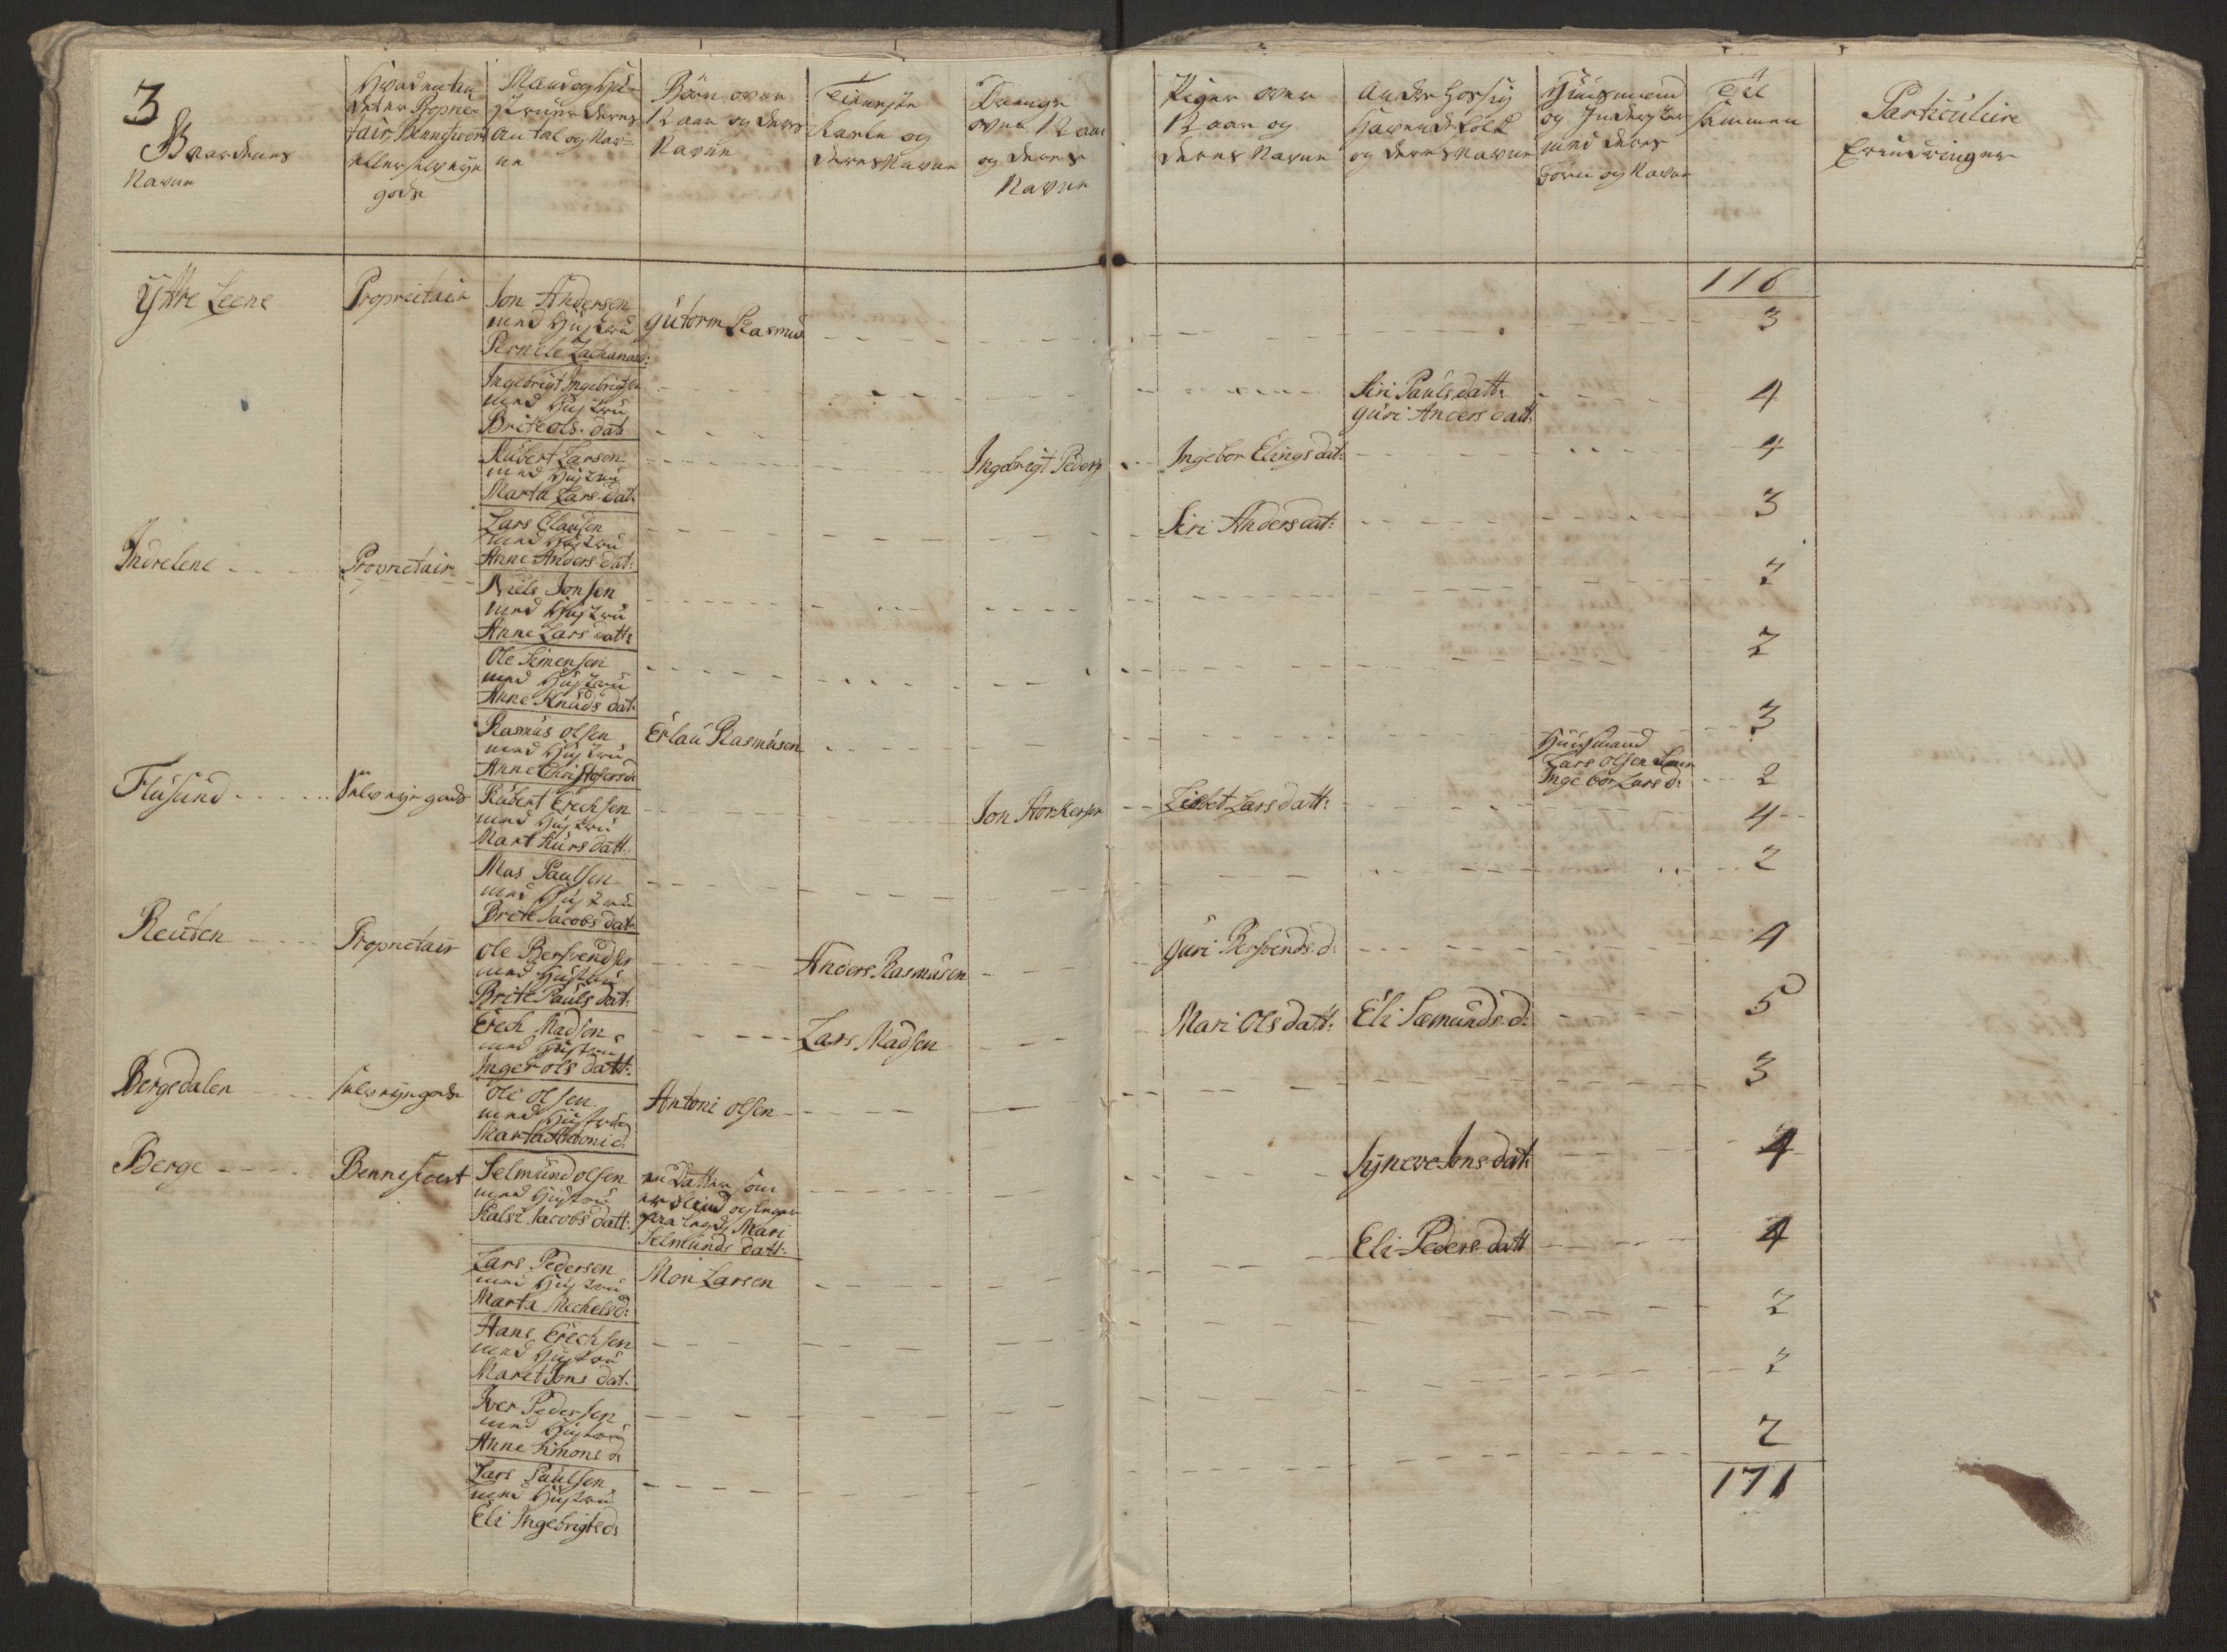 3
Gaardenes
Navne
Hvad enten
det er Proprie-
tair, Benneficeret
eller selv eyer
gods
Mand og Hu-
struer deres
antal og Nav=
ne
Børn over
12 aar og deres
Navne
Tieneste
Karle og
deres Navne
Drenge
over 12 aar
og deres
Navne
Piger over
12 aar og
deres Navne
Andre Hossig
Havende Folk
og deres Navne
Huusmænd
og Inderster
med deres
Navne
Til
sammen
Particulire
Erindringer
116
Ÿtre Leene
Proprietair
Jon Andersen
med Hustru
Pernele Zacharias d:
Gutorm Rasmus
3
Ingebrigt Ingebrigtsen
med Hustru
Brite Ols dat
Siri Pauls datt:
Guri Anders datt:
4
Rubert Larsen
med Hustru
Marta Lars dat:
Ingebrigt Peders
Ingebor Elings dat:
4
Lars Clausen
med Hustru
Anne Anders dat:
Siri Anders dat:
3
Indrelene
Proprietair
Niels Jonsen
med Hustru
Anne Lars datt:
2
Ole Simensen
med Hustru
Anne Knuds dat:
2
Rasmus Olsen
med Hustru
Anne Christofers d
Erlau Rasmusen
3
Huusmand
Lars Olsen
Ingebor Lars d:
2
Flusund
Selv eyer gods
Rubert Erechsen
med Hustru
Mart Kurs datt:
Jon
Lisbet Lars datt:
4
Mas Paulsen
med Hustru
Brite Jacobs dat:
2
Reuten
Proprietair
Ole Bersvends
med Hustru
Brite Pauls dat:
Anders Rasmusen
Guri Bersvends d:
4
Erech Madsen
med Hustru
Inger Ols datt:
Lars Madsen
Mari Ols datt:
Eli Sæmunds d:
5
Bergedalen
selv eyer gods
Ole Olsen
med Hustru
Marta Antoni d:
Antoni Olsen
3
Berge
Bennificert
Selmund Olsen
med Hustru
Kalse Jacobs datt:
en Datter som
er blind og ligger
paa legd, Mari
Selmunds datt:
Syneve Jons dat:
4
Lars Pedersen
med Hustru
Marta Michels d:
Mon Larsen
Eli Peders datt
4
Hans Erechsen
med Hustru
Maret Jons dat:
2
Iver Pedersen
med Hustru
Anne Simons d
2
Lars Paulsen
med Hustru
Eli Ingebrigts d:
2
171